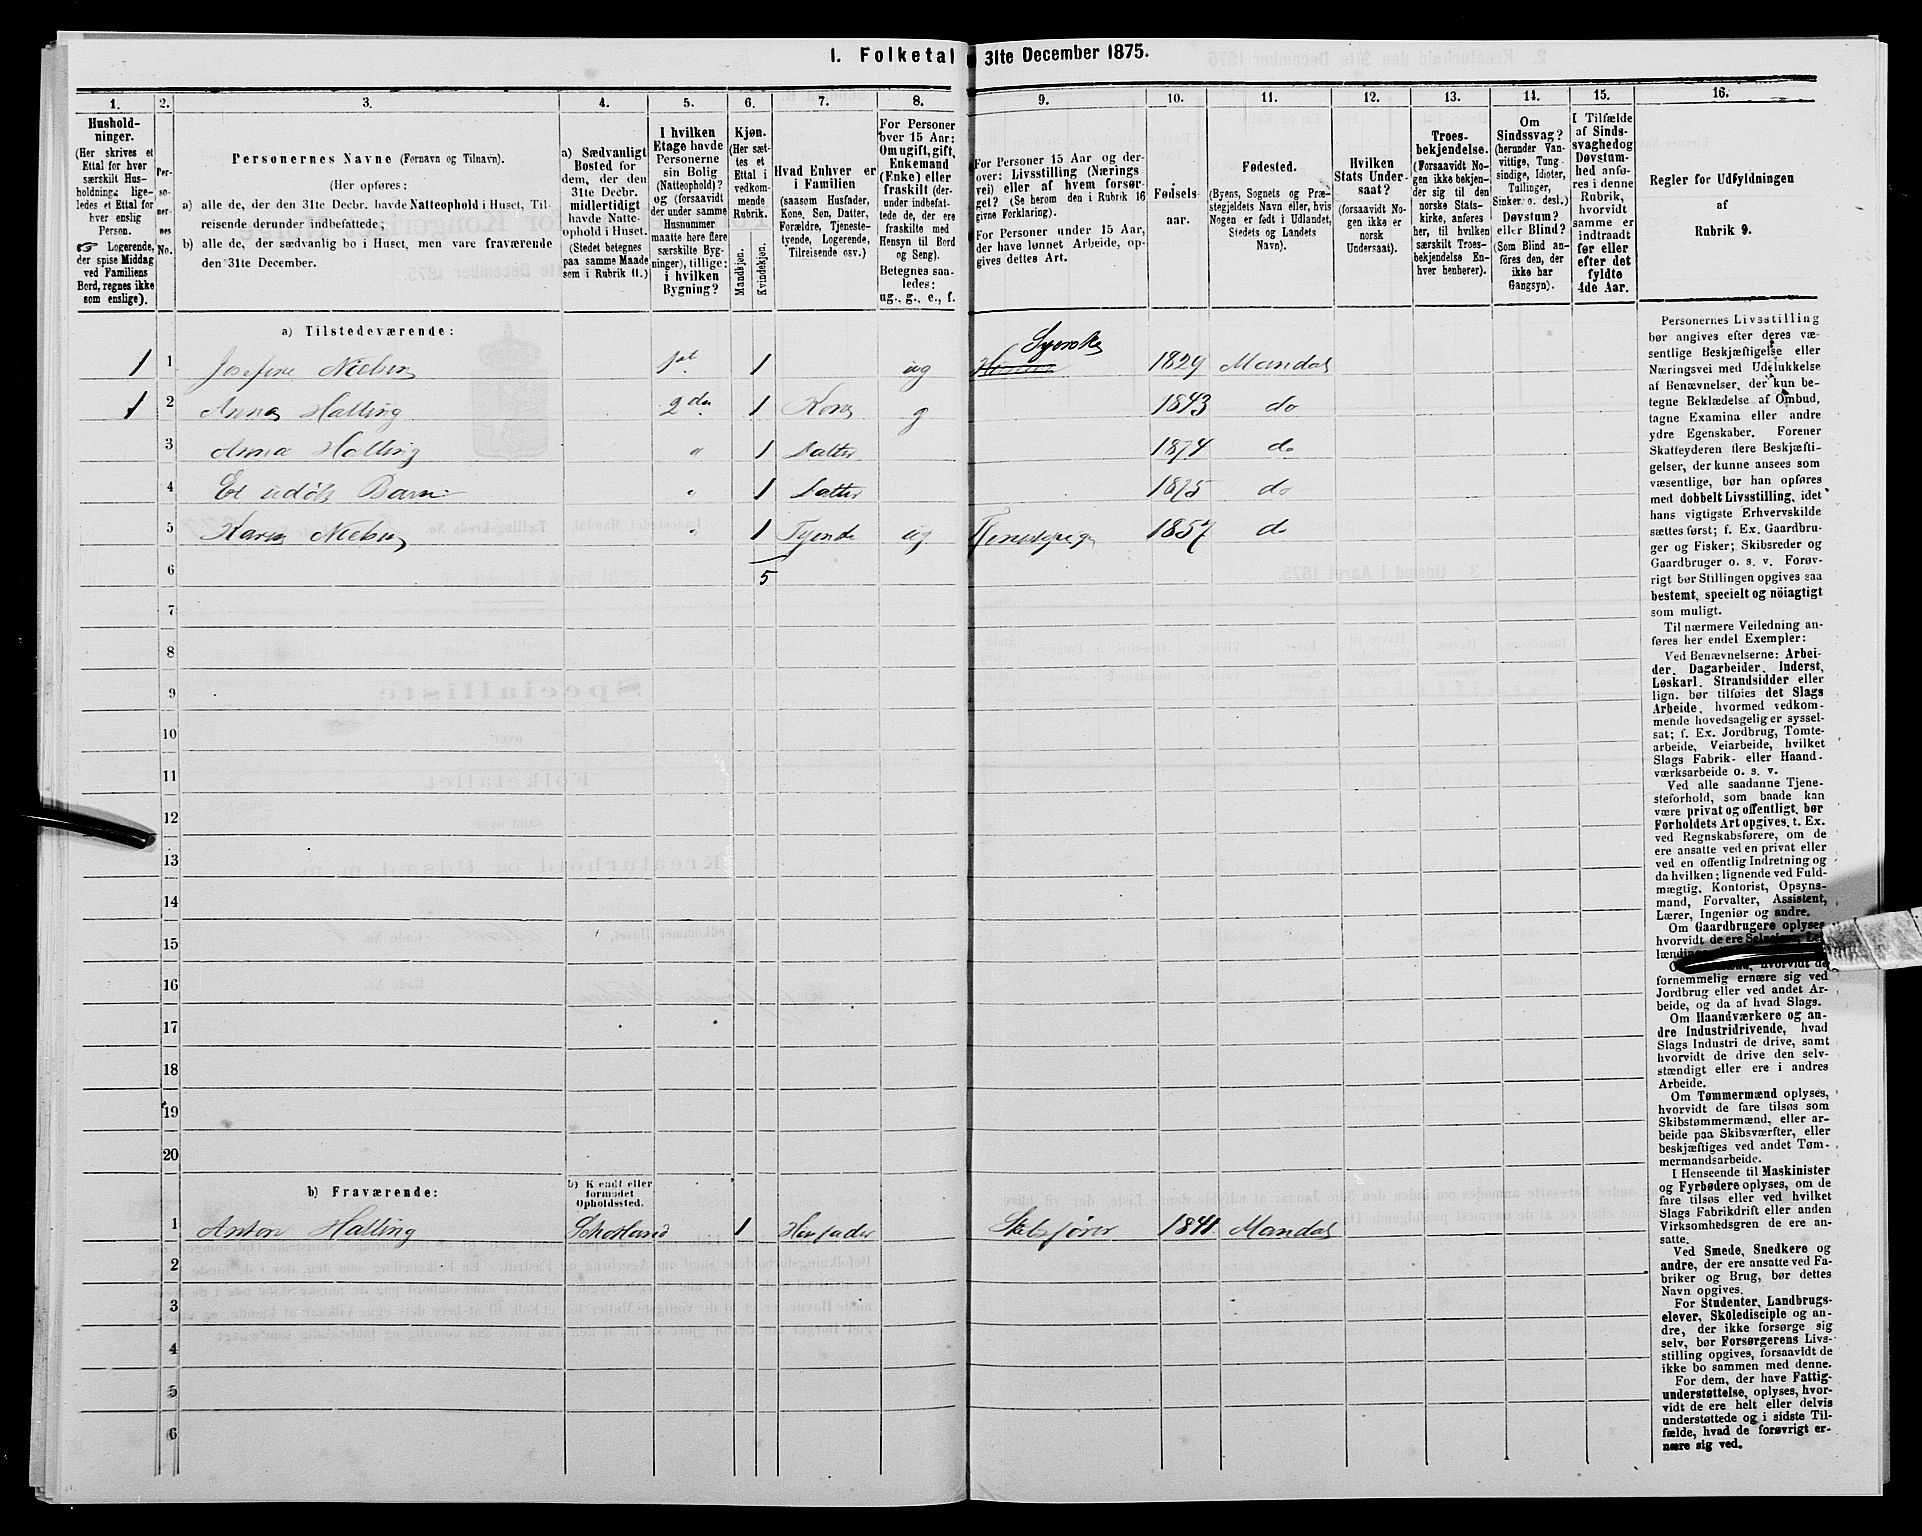 1. Folketal 31te December 1875.
1. 2. 3. 4. 5. 6. 7. 8. 9. 10. 11. 12. 13. 14. 15. 16.
Hushold-
ninger.
(Her skrives et
Ettal for hver
særskilt Hus-
holdning; lige-
ledes et Ettal for
hver enslig
Person.
☞ Logerende,
der spise Middag
ved Familiens
Bord, regnes ikke
som enslige).
Per-
so-
ner-
nes
No.
Personernes Navne (Fornavn og Tilnavn).
(Her opføres:
a) alle de, der den 31te Decbr. havde Natteophold i Huset, Til-
reisende derunder indbefattede;
b) alle de, der sædvanlig bo i Huset, men vare fraværende
den 31te December.
a) Sædvanligt
Bosted for
dem, der den
31te Decbr.
midlertidigt
havde Natte-
ophold i Huset.
(Stedet betegnes
paa samme Maade
som i Rubrik 11.)
I hvilken
Etage havde
Personerne
sin Bolig
(Natteophold)?
og (forsaavidt
der under samme
Husnummer
maatte høre flere
særskilte Byg-
ninger), tillige:
i hvilken
Bygning?
Kjøn.
(Her sæt-
tes et
Ettal i
vedkom-
mende
Rubrik.
Mandkjøn.
Kvindekjøn.
Hvad Enhver er
i Familien
(saasom Husfader,
Kone, Søn, Datter,
Forældre, Tjeneste-
tyende, Logerende,
Tilreisende osv.)
For Personer
over 15 Aar:
Om ugift, gift,
Enkemand
(Enke) eller
fraskilt (der-
under indbefat-
tede de, der ere
fraskilte med
Hensyn til Bord
og Seng).
Betegnes saa-
ledes:
ug., g., e., f.
For Personer 15 Aar og der-
over: Livsstilling (Nærings
vei) eller af hvem forsør-
get? (Se herom den i Rubrik 16
givne Forklaring).
For Personer under 15 Aar,
der have lønnet Arbeide, op-
gives dettes Art.
Fødsels-
aar.
Fødested.
(Byens, Sognets og Præ-
stegjeldets Navn eller, hvis
Nogen er født i Udlandet,
Stedets og Landets
Navn).
Hvilken
Stats Under-
saat?
(forsaavidt No-
gen ikke er
norsk
Undersaat).
Troes-
bekjendelse.
(Forsaavidt No-
gen ikke bekjen-
der sig til den
norske Stats-
kirke, anføres
her, til hvilken
særskilt Troes-
bekjendelse En-
hver henhører).
Om
Sindssvag?
(herunder Van-
vittige, Tung-
sindige, Idioter,
Tullinger,
Sinker o. desl.)
Døvstum?
eller Blind?
(Som Blind an-
føres den, der
ikke har
Gangsyn).
I Tilfælde
af Sinds-
svaghed og
Døvstum-
hed anfø-
res i denne
Rubrik,
hvorvidt
samme er
indtraadt
før eller
efter det
fyldte
4de Aar.
Regler for Udfyldningen
af
Rubrik 9.
a) Tilstedeværende:
1 1 Josefine Nielsen 1st 1 ug Syerske 1829 Mandal
1 2 Anna Halling 2den 1 Kone g 1843 do
3 Anna Halling " 1 Datter 1874 do
4 Et udøbt Barn " 1 Datter 1875 do
5 Karen Nielsen " 1 Tyende ug Tjenestepige 1857 do
6 5
7
8
9
10
11
12
13
14
15
16
17
18
19
20
b) Fraværende:
b) Kjendt eller
formodet
Opholdssted.
1 Anton Halling Skotland 1 Husfader Skibsfører 1841 Mandal
2
3
4
5
6
Personernes Livsstilling
bør angives efter deres væ-
sentlige Beskjæftigelse eller
Næringsvei med Udelukkelse
af Benævnelser, der kun be-
tegne Beklædelse af Ombud,
tagne Examina eller andre
ydre Egenskaber. Forener
Skatteyderen flere Beskjæfti-
gelser, der kunne ansees som
væsentlige, bør han opføres
med dobbelt Livsstilling, idet
hans vigtigste Erhvervskilde
sættes først; f. Ex. Gaardbru-
ger og Fisker; Skibsreder og
Gaardbruger o. s. v. Forøv-
rigt bør Stillingen opgives saa
bestemt, specielt og nöiagtigt
som muligt.
Til nærmere Veiledning an-
føres her endel Exempler:
Ved Benævnelserne: Arbei-
der, Dagarbeider, Inderst,
Løskarl, Strandsidder eller
lign. bør tilføies det Slags
Arbeide, hvormed vedkom-
mende hovedsagelig er syssel-
sat; f. Ex. Jordbrug, Tomte-
arbeide, Veiarbeide, hvilket
Slags Fabrik- eller Haand-
værksarbeide o. s. v.
Ved alle saadanne Tjene-
steforhold, som baade kan
være privat og offentligt, bør
Forholdets Art opgives, t. Ex.
ved Regnskabsførere, om de
ere ansatte ved en privat eller
ved en offentlig Indretning og
da hvilken; lignende ved Fuld-
mægtig, Kontorist, Opsyns-
mand, Forvalter, Assistent,
Lærer, Ingeniør og andre.
Om Gaardbrugere oplyses,
hvorvidt de ere
hvorvidt de
fornemmelig ernære sig ved
Jordbrug eller ved andet Ar-
beide, og da af hvad Slags.
Om Haandværkere og an-
dre Industridrivende, hvad
Slags Industri de drive, samt
hvorvidt de drive den selv-
stændigt eller ere i andres
Arbeide.
Om Tømmermænd oplyses,
hvorvidt de fare tilsøs som
Skibstømmermænd, eller ar-
beide paa Skibsværfter, eller
beskjæftiges ved andet Tøm-
mermandsarbeide.
I Henseende til Maskinister
og Fyrbødere oplyses, om de
fare tilsøs eller ved hvilket
Slags Fabrikdrift eller anden
Virksomhedsgren de ere an-
satte.
Ved Smede, Snedkere og
andre, der ere ansatte ved Fa-
briker og Brug, bør dettes
Navn opgives.
For Studenter, Landbrugs-
elever, Skoledisciple og an-
dre, der ikke forsørge sig
selv, bør Forsørgerens Livs-
stilling opgives, forsaavidt de
ikke bo sammen med denne.
For dem, der have Fattig-
understøttelse, oplyses, hvor-
vidt de ere helt eller delvis
understøttede og i sidste Til-
fælde, hvad de forøvrigt er-
nære sig ved.